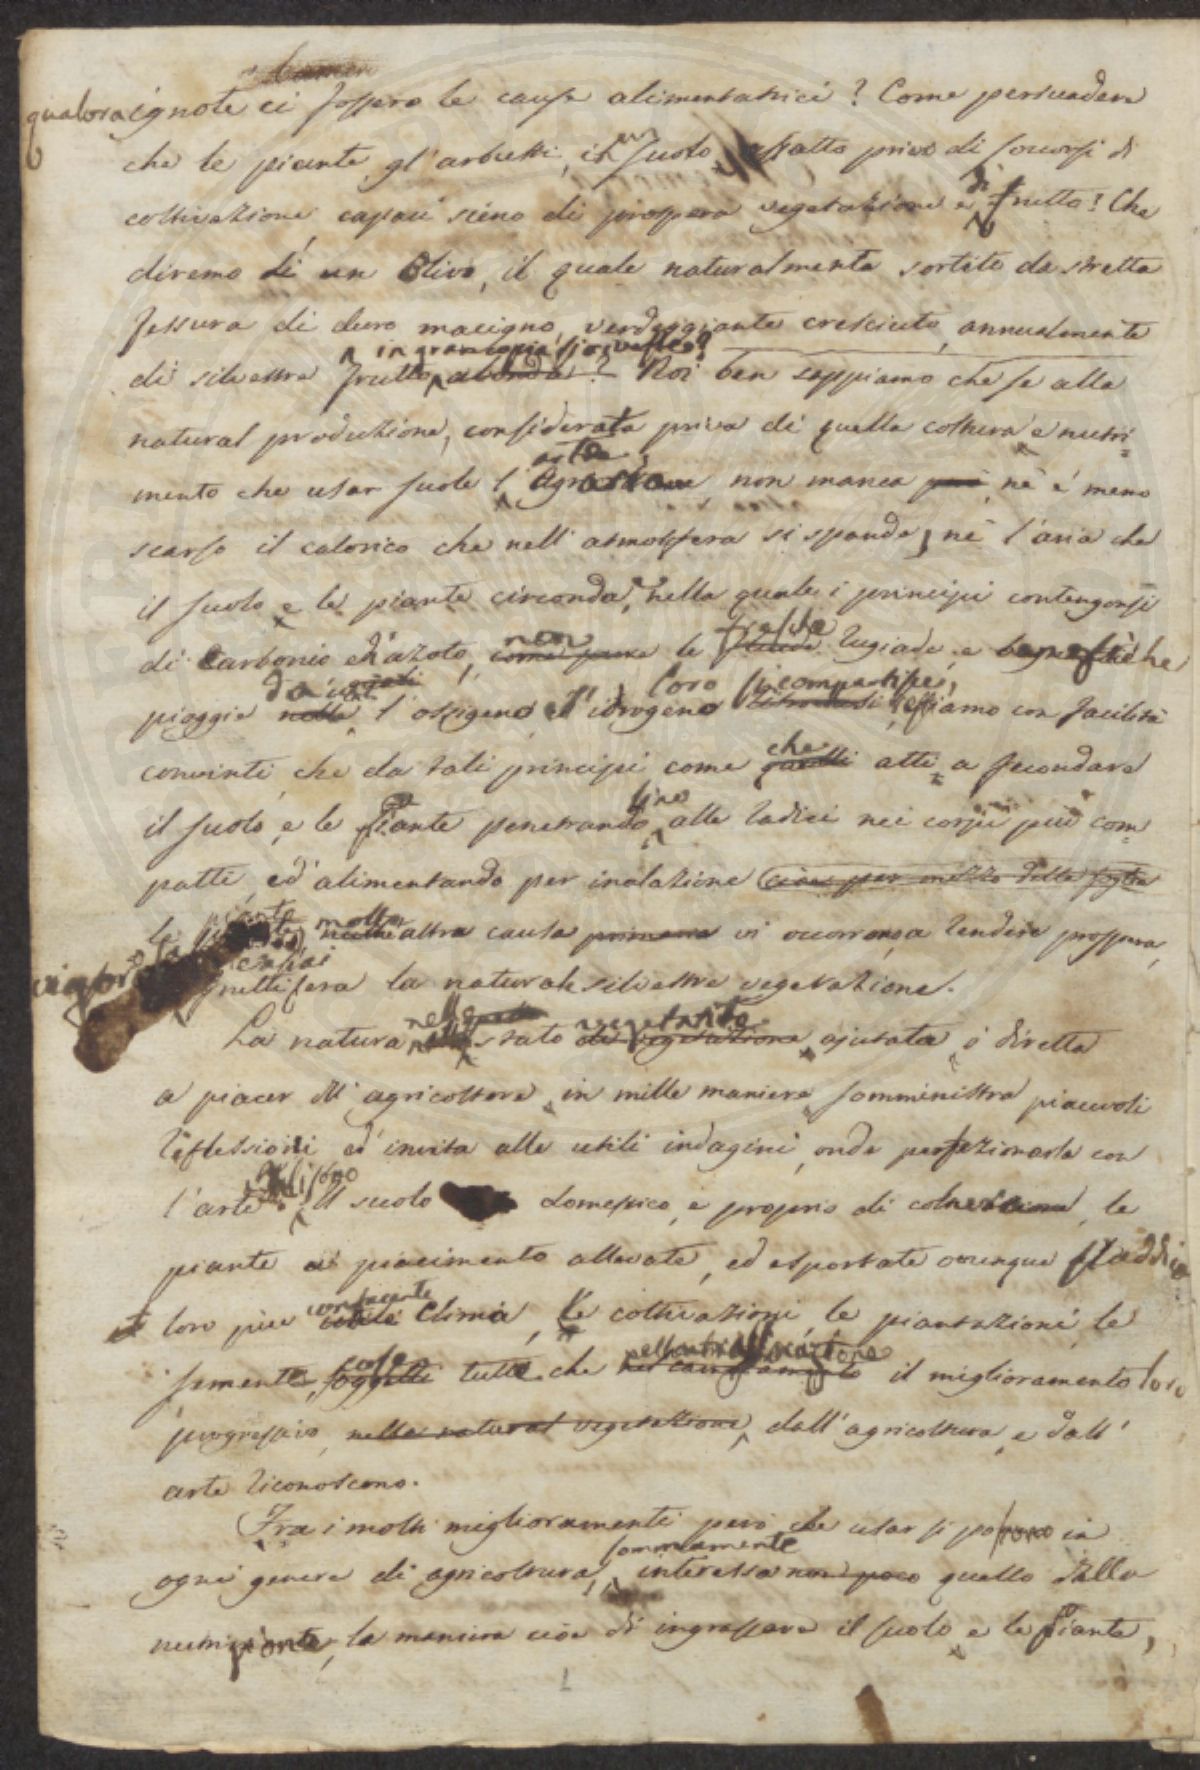 qualora ignote ci fossero le cause alimentatrici? Come persuadere
che le piante gl'arbusti, in un suolo affatto privo di soccorsi di
coltivazione, capaci sieno di prospera vegetazione e di frutto! Che
diremo di un Olivo, il quale naturalmente sortito da stretta
fessura di duro macigno, verdeggiante cresciuto, annualmente
in gran copia
di silvestre frutto abonda? Noi ben sappiamo che se alla
natural produzione, considerata priva di quella coltura e nutri=
mento che usar suole l'Agricoltore, non manca però, nè è meno
scarso il calorico che nell'atmosfera si spande, nè l'aria che
il suolo e le piante circonda, nella quale i principj contengonsi
non fresche
di Carbonio ed'azoto, come pure le rugiade, e benefiche
loro si compartisce,
pioggie nelle l'ossigeno, ed'idrogeno siamo con facilità
che
convinti, che da tali principj come quelli atti a fecondare
sino
il suolo, e le Piante penetrando alle radici nei corpi più com=
patti, ed'alimentando per inalazione cioè per mezzo delle foglie
piante molta
le altra causa primaria vi occorre a rendere prospera,
fruttifera la naturale silvestre vegetazione.
vegetante
La natura stato di vegetazione, ajutata, o diretta
a piacer dell'agricoltore, in mille maniere somministra piacevoli
riflessioni ed'invita alle utili indagini, onde perfezionarla con
l'arte. Il suolo domestico, e proprio di coltivazione, le
piante a piacimento allevate, ed esportate ovunque
loro più utile Clima, Le coltivazioni, le piantazioni, le
cose
sementi, soggetti tutte che nel cangiamento il miglioramento loro
progressivo, nella natural vegetazione, dall'agricoltura, e dall'
arte riconoscono.
Fra i molti miglioramenti però che usar si possono in
sommamente
ogni genere di agricoltura, interessa non poco quello della
nutrizione, la maniera cioè di ingrassare il suolo, e le Piante,